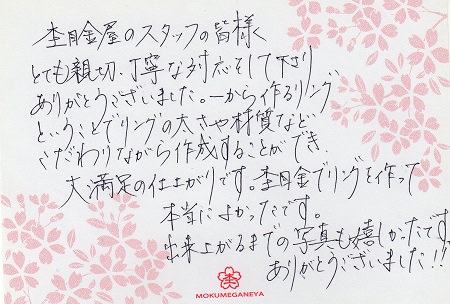 杢目金屋のスタッフの皆様へ
とても親切、丁寧な対応をして下さり
ありがとうございました。一から作るリング
ということでリングの太さや材質など
こだわりながら作成することができ、
大満足の仕上がりです。杢目金でリングを作って
本当によかったです。
出来上がるまでの写真も嬉しかったです。
ありがとうございました!!
MOKUMEGANEYA